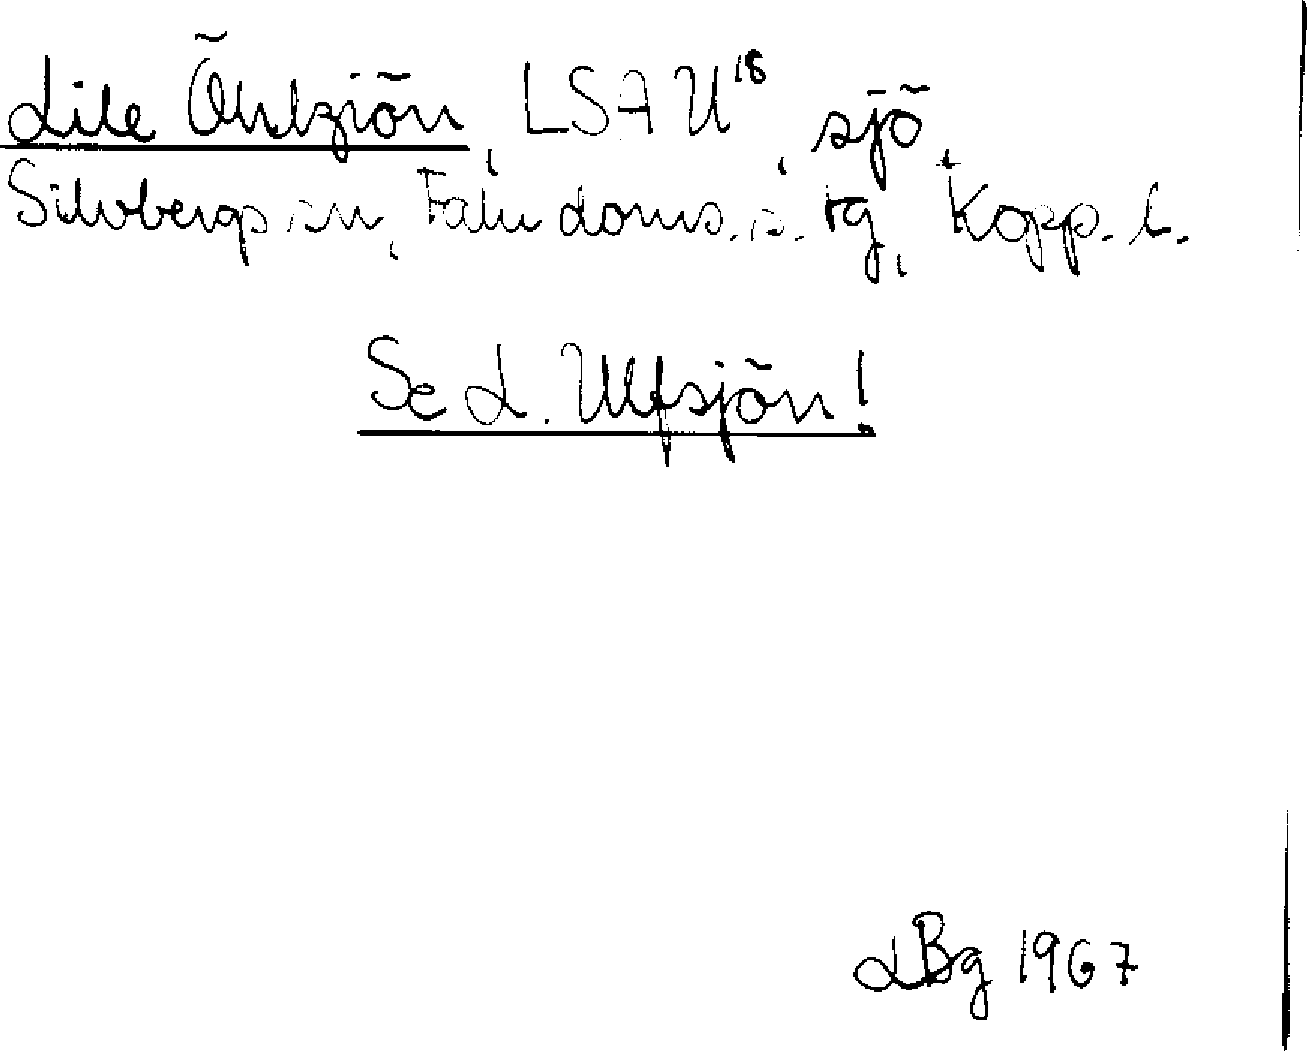 Lile Öhlziön, LSA U18, sjö,
Silvbergs sn, Falu doms. s. tg, Kopp. l.
Se L. Ulfsjön!
LBg 1967